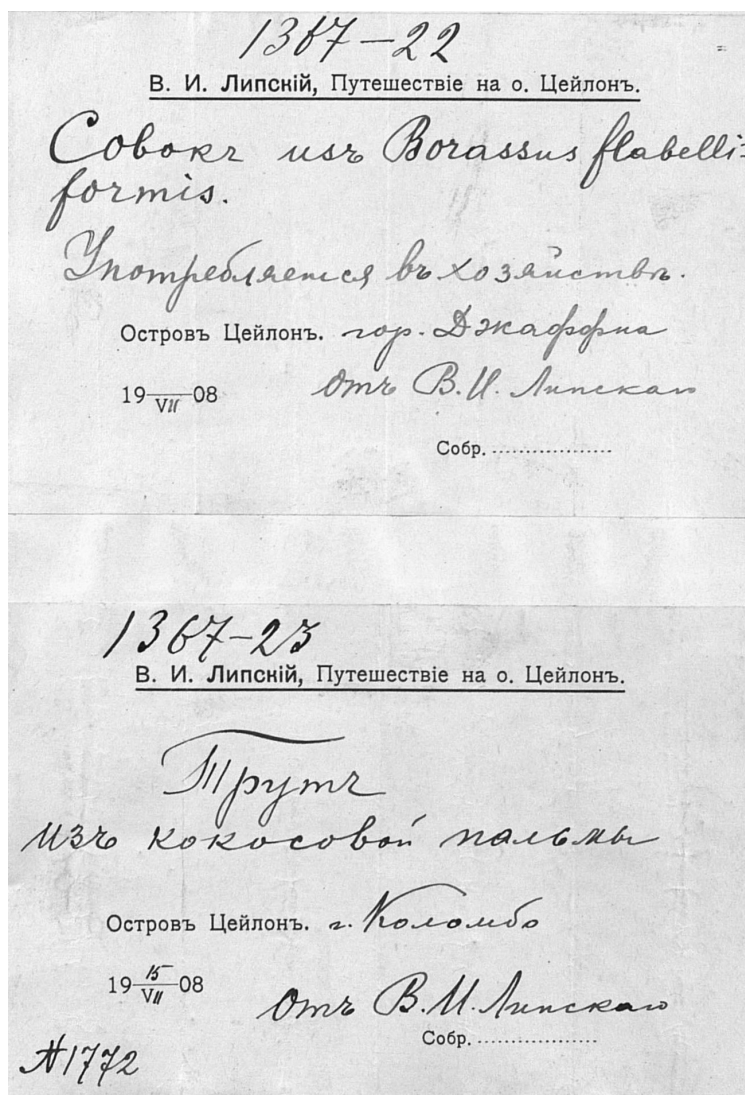 1367-22
В. И. Липскій, Путешествіе на о. Цейлонъ.
Совокъ изъ Borassus flabelli=
formis.
Употребляется въ хозяйствѣ.
Островъ Цейлонъ. гор. Джаффна
19 VII 08 отъ В. И. Липскаго
Собр. ...................
1367-23
В. И. Липскій, Путешествіе на о. Цейлонъ.
Трутъ
изъ кокосовой пальмы
Островъ Цейлонъ. г. Коломбо
19 15 VII 08 отъ В. И. Липскаго
Собр. ...................
№1772